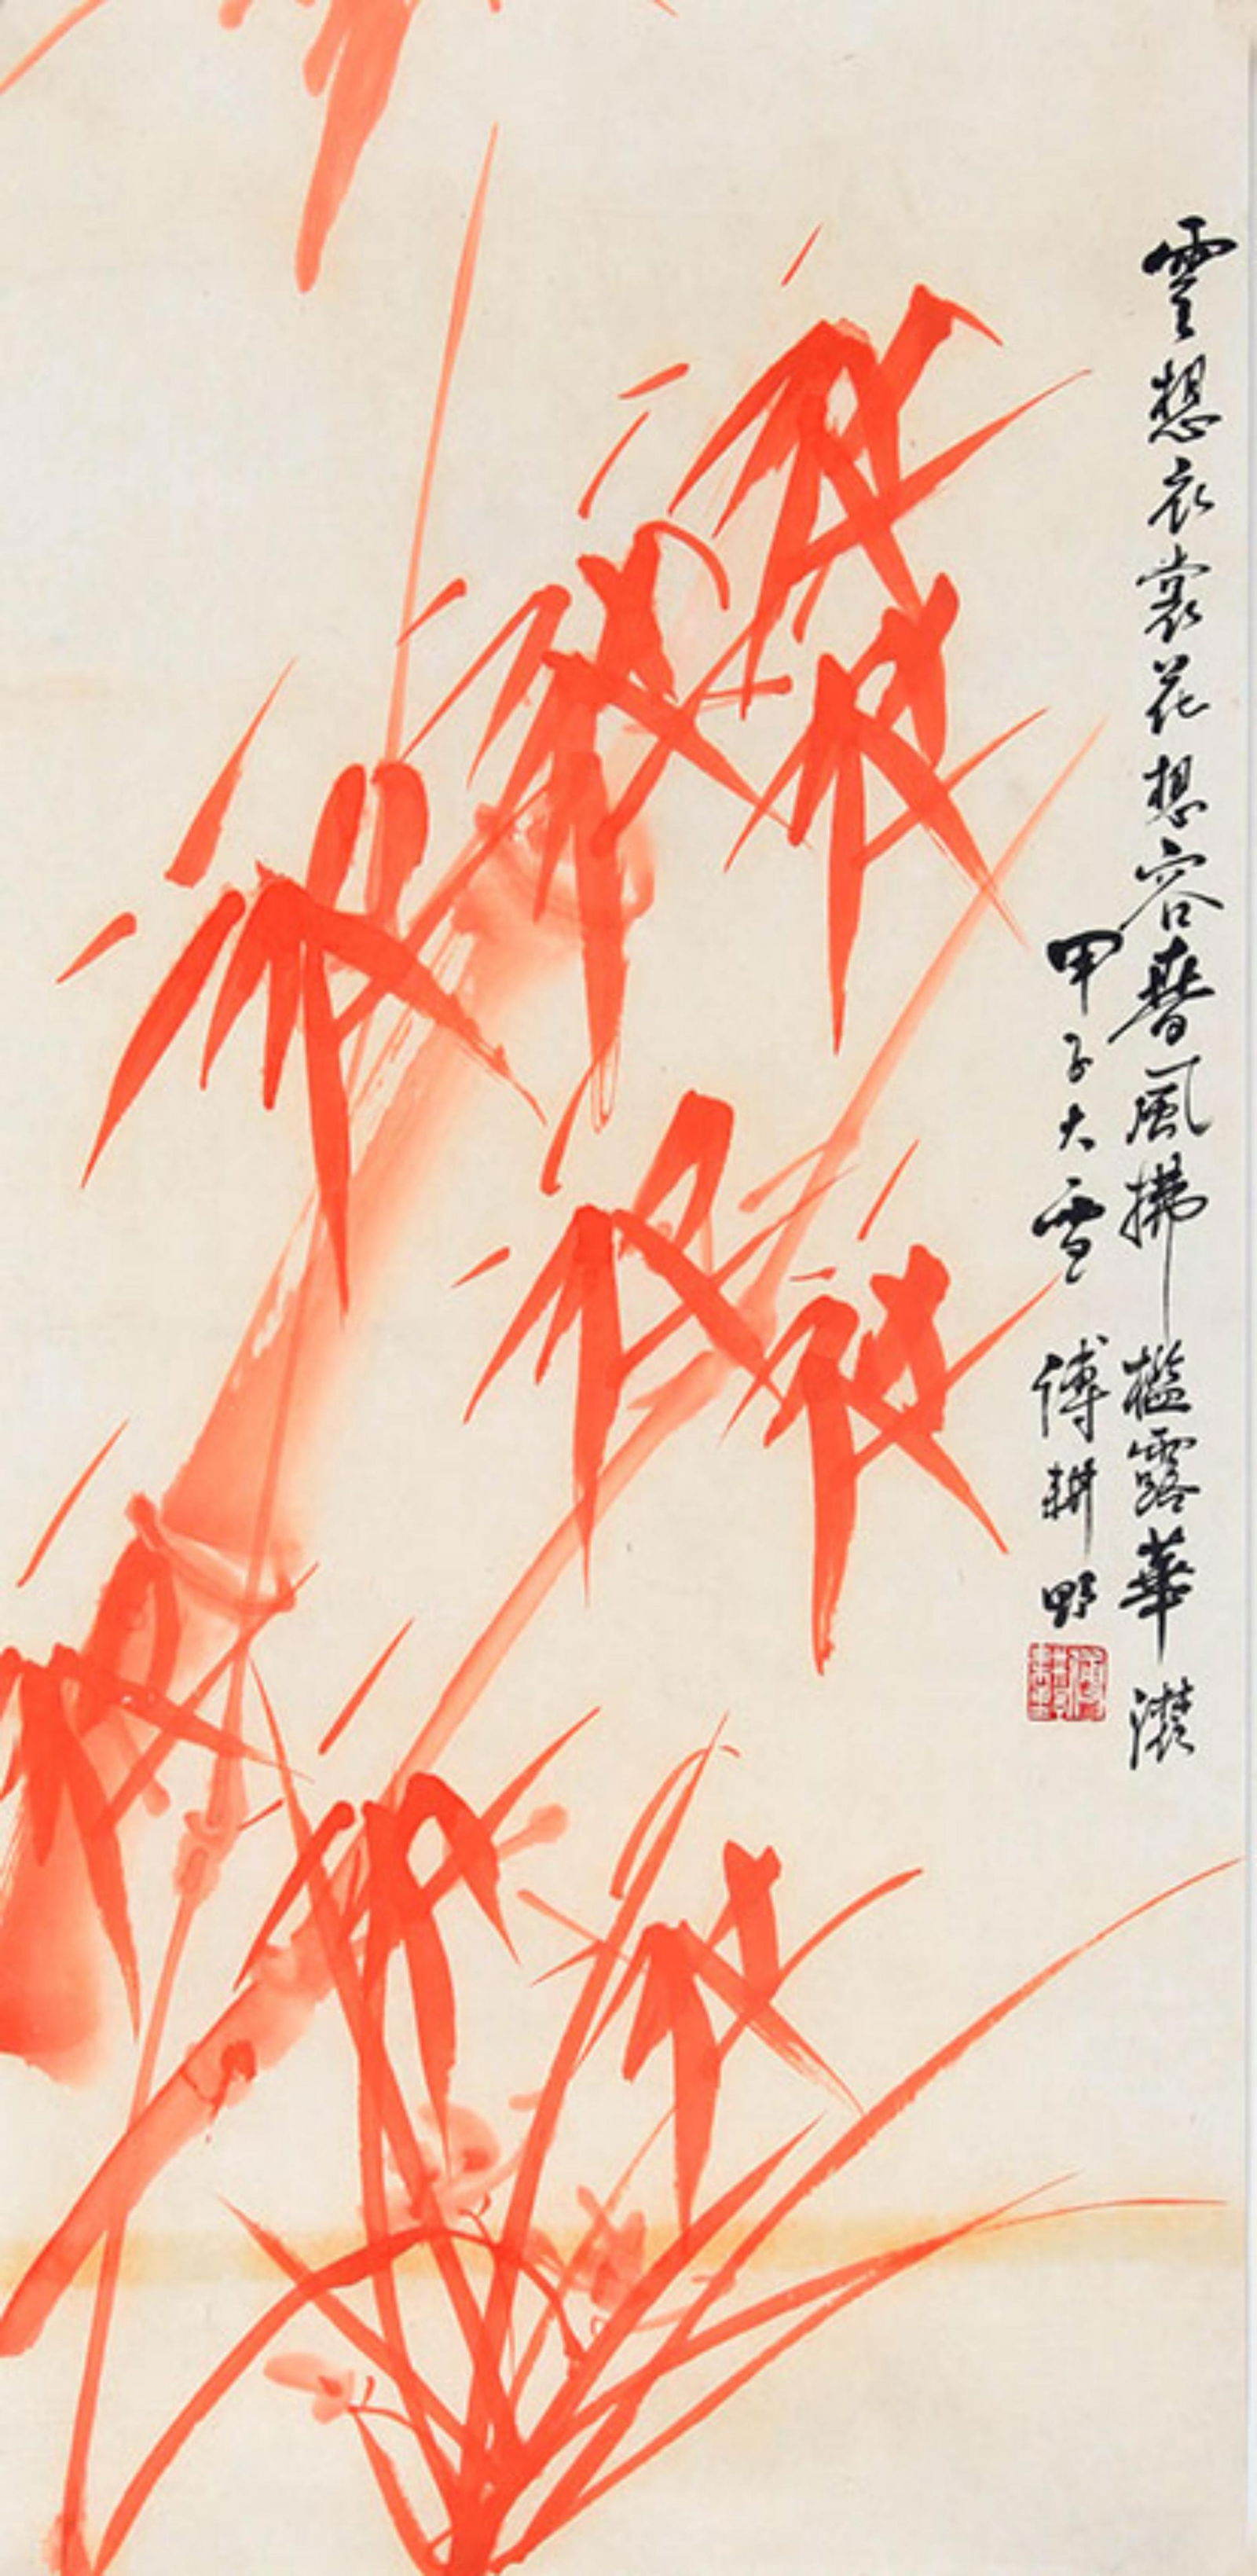 雲想衣裳花想容春風拂檻露華濃
甲子大雪 傅耕野